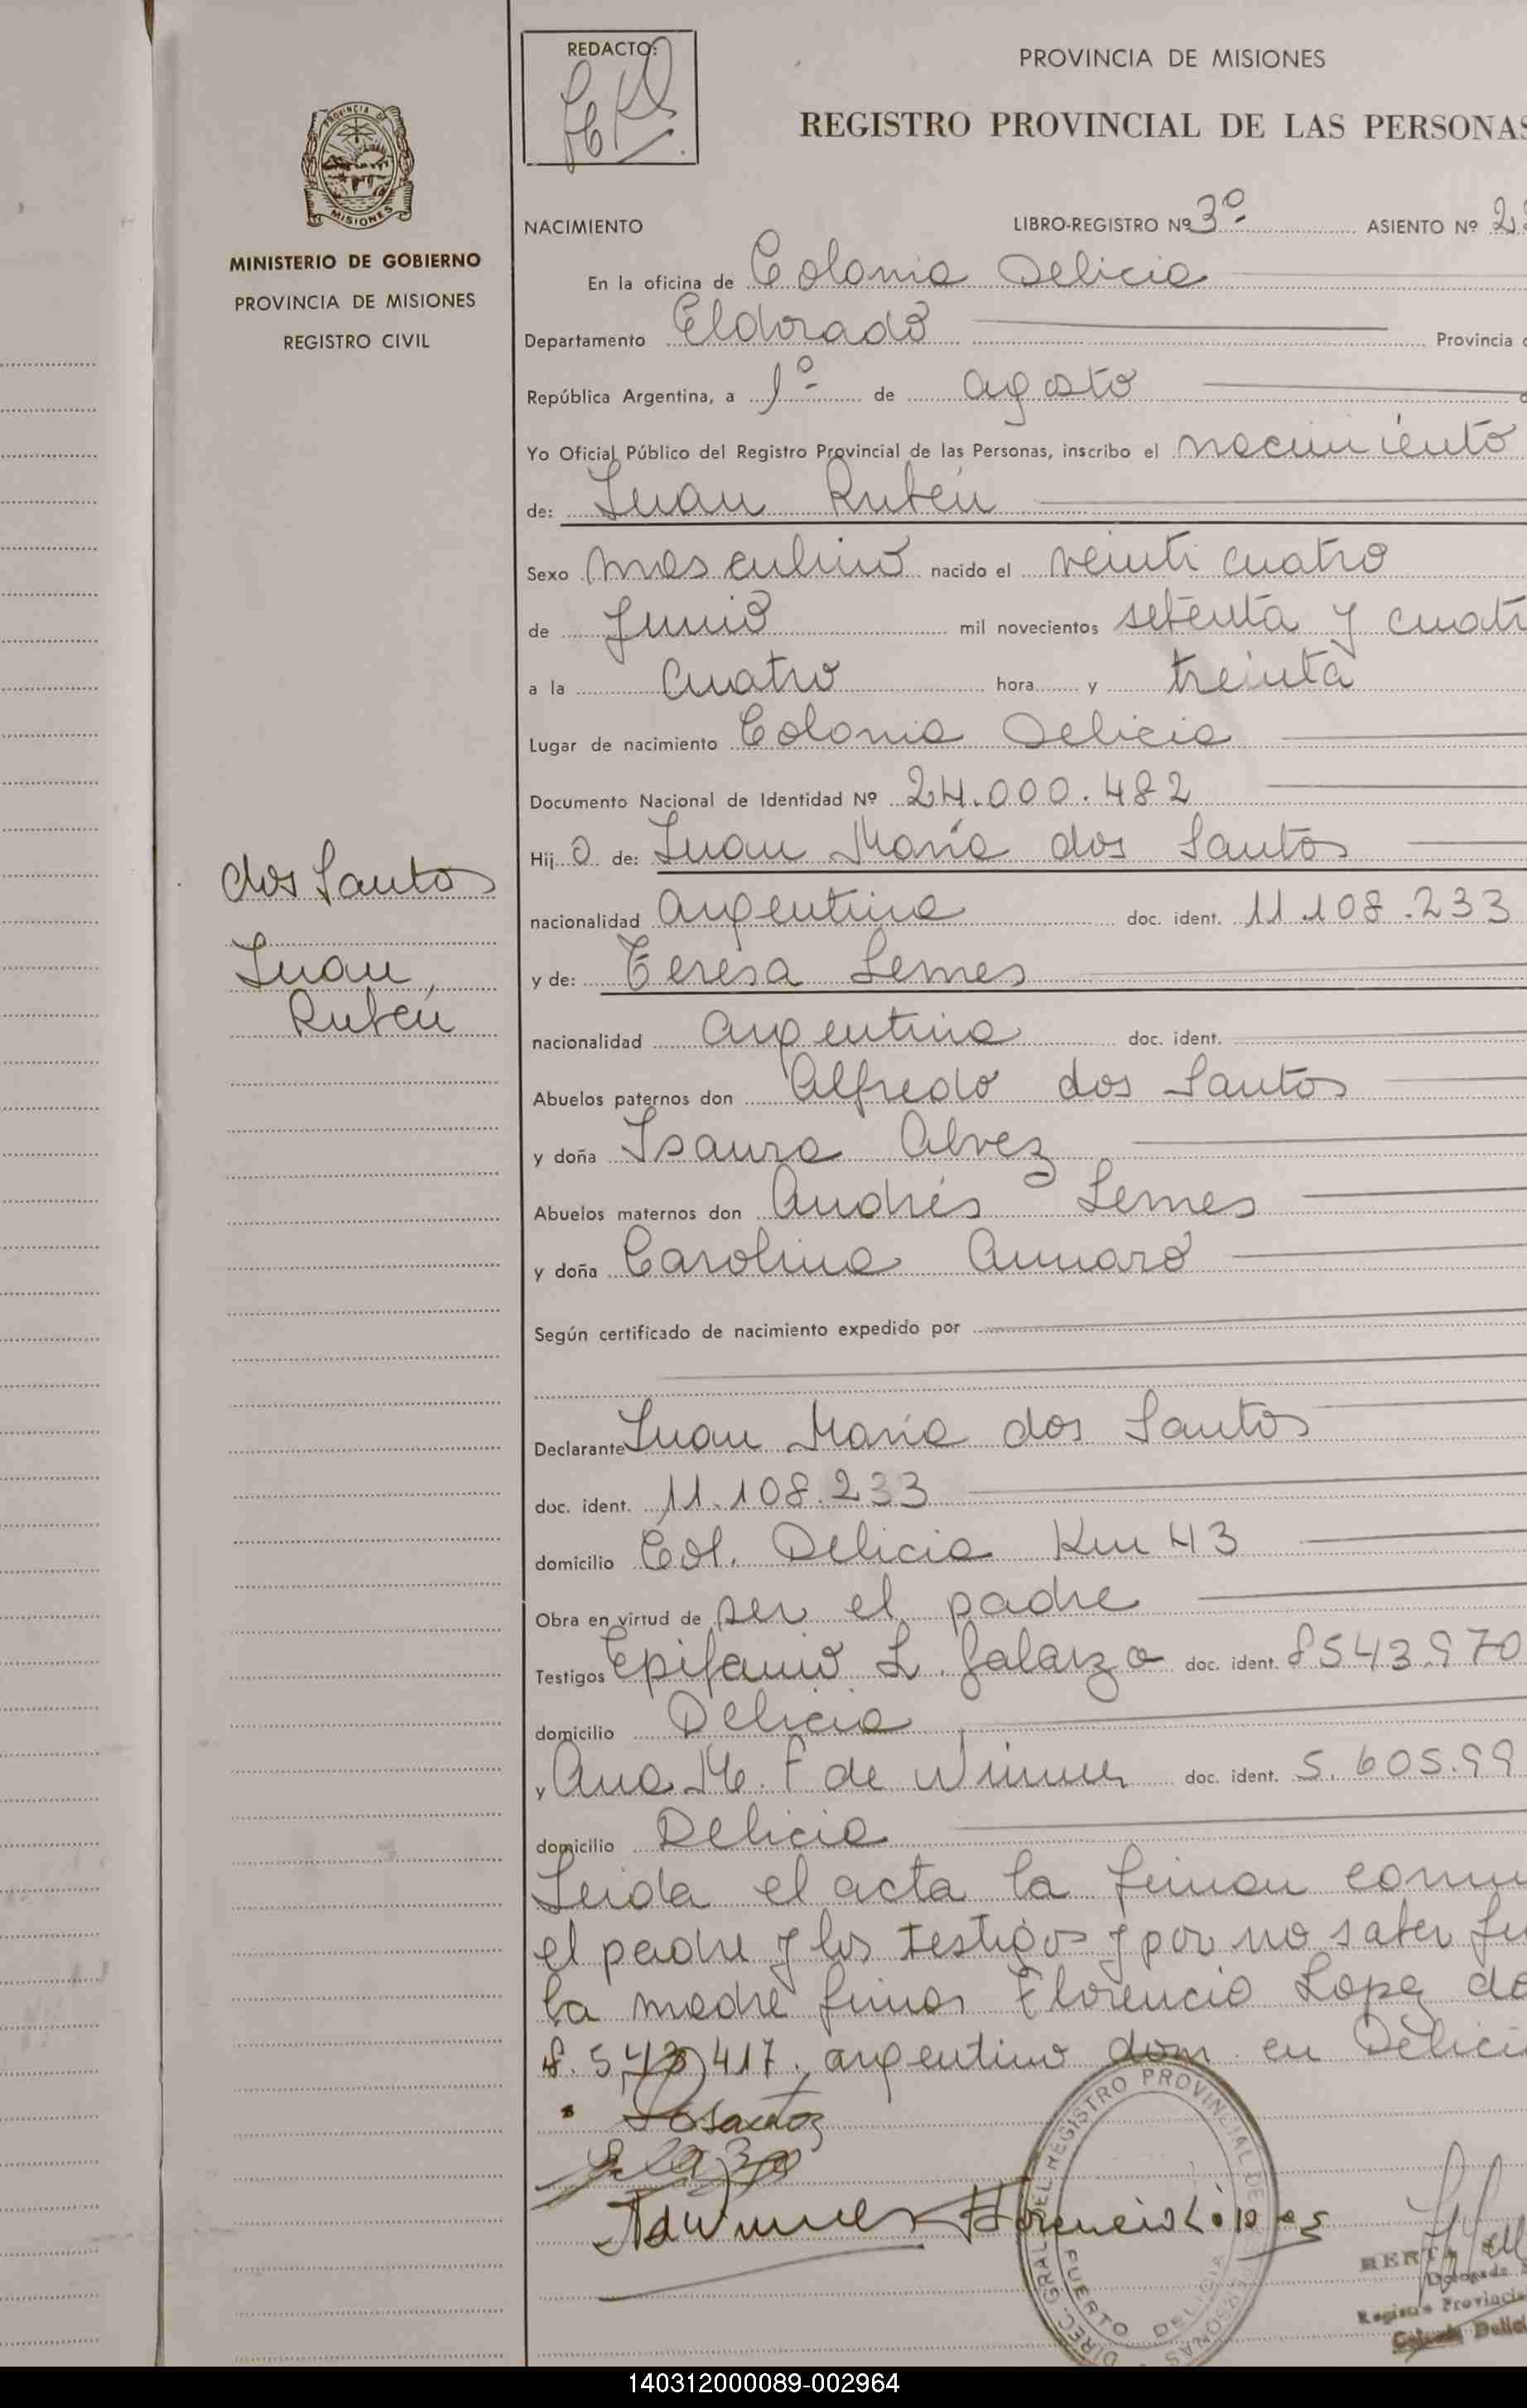 REDACTO:
PROVINCIA DE MISIONES
REGISTRO PROVINCIAL DE LAS PERSONAS
PROVINCIA DE
MISIONES
MINISTERIO DE GOBIERNO
PROVINCIA DE MISIONES
REGISTRO CIVIL
NACIMIENTO LIBRO-REGISTRO Nº 3º ASIENTO Nº
En la oficina de Colonia Delicia
Departamento Eldorado Provincia
República Argentina, a 1º de agosto
Yo Oficial Público del Registro Provincial de las Personas, inscribo el nacimiento
de: Juan Rubén
Sexo masculino nacido el veinticuatro
de Junio mil novecientos setenta y cuatr
a la cuatro hora y treinta
Lugar de nacimiento Colonia Delicia
Documento Nacional de Identidad Nº 24.000.482
Hij o de: Juan María dos Santos
dos Santos
Juan,
Rubén
nacionalidad argentina doc. ident. 11.108.233
y de: Teresa Lemes
nacionalidad argentina doc. ident.
Abuelos paternos don Alfredo dos Santos
y doña Isaura Alvez
Abuelos maternos don Andrés Lemes
y doña Carolina
Según certificado de nacimiento expedido por
Declarante Juan María dos Santos
doc. ident. 11.108.233
domicilio Col. Delicia Km 43
Obra en virtud de ser el padre
Testigos Epifanio L. Galarza doc. ident. 8543.970
domicilio Delicia
y Ana M. F de Winner doc. ident. 5.605.99
domicilio Delicia
Leida el acta la firman conm
el padre y los testigos y por no saber fir
la madre firma Florencio Lopez do
8.543.417, argentino dom. en Delici
Dosantoz
Florencio López
DIREC. GRAL. DEL REGISTRO PROVINCIAL DE PERSONAS
PUERTO DELICIA
Registro Provincia
Colonia Delici
140312000089-002964